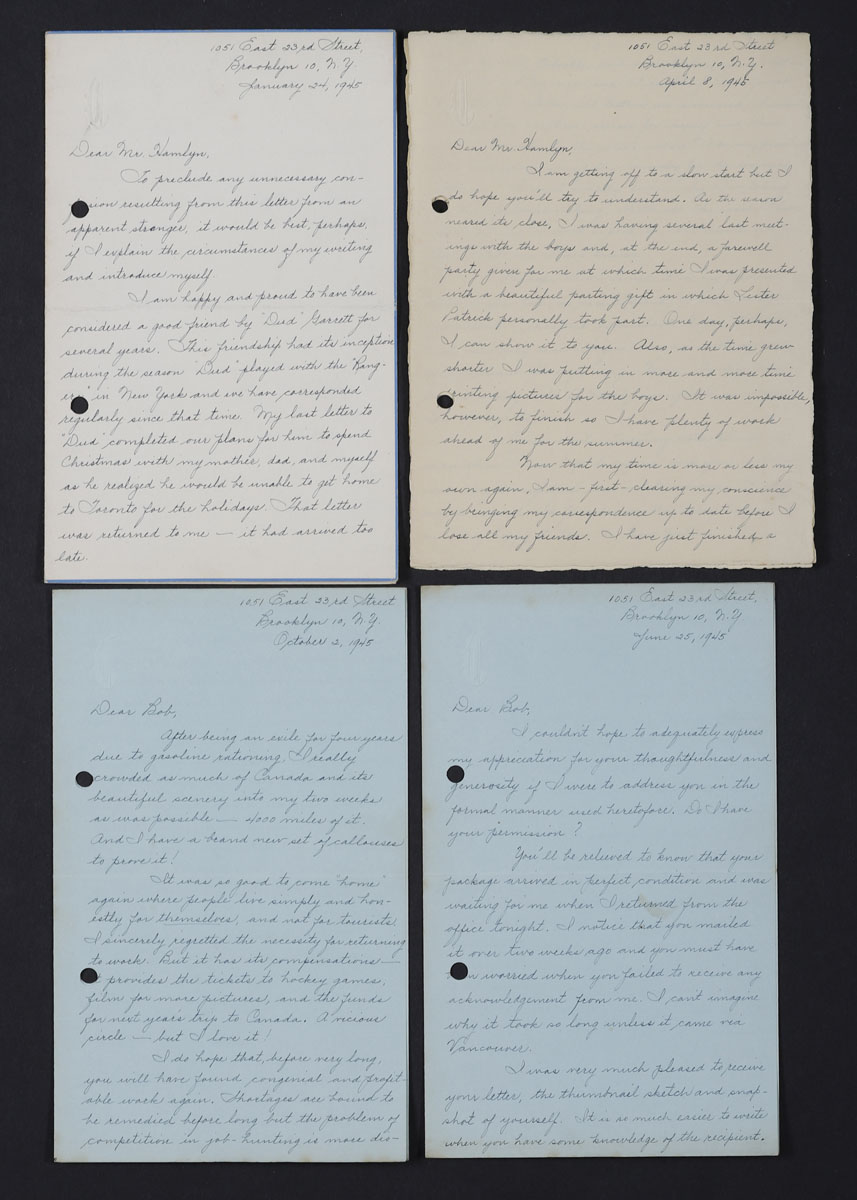 1051 East 23rd Street,
Brooklyn 10, N.Y.
January 24, 1945
Dear Mr. Hamlyn,
To preclude any unnecessary con-
sion resulting from this letter from an
apparent stranger, it would be best, perhaps,
if I explain the circumstances of my writing
and introduce myself.
I am happy and proud to have been
considered a good friend by "Dud" Garrett for
several years. This friendship had its inception
during the season Dud played with the "Rang-
ers" in New York and we have corresponded
regularly since that time. My last letter to
"Dud" completed our plans for him to spend
Christmas with my mother, dad, and myself
as he realized he would be unable to get home
to Toronto for the holidays. That letter
was returned to me — it had arrived too
late.
1051 East 23rd Street
Brooklyn 10, N.Y.
April 8, 1945
Dear Mr. Hamlyn,
I am getting off to a slow start but I
do hope you'll try to understand. As the season
neared its close, I was having several last meet-
ings with the boys and, at the end, a farewell
party given for me at which time I was presented
with a beautiful parting gift in which Lester
Patrick personally took part. One day, perhaps,
I can show it to you. Also, as the time grew
shorter I was putting in more and more time
printing pictures for the boys. It was impossible,
however, to finish so I have plenty of work
ahead of me for the summer.
Now that my time is more or less my
own again, I am - first - clearing my conscience
by bringing my correspondence up to date before I
lose all my friends. I have just finished a
1051 East 23rd Street
Brooklyn 10, N.Y.
October 2, 1945
Dear Bob,
After being an exile for four years
due to gasoline rationing, I really
crowded as much of Canada and its
beautiful scenery into my two weeks
as was possible — 4000 miles of it.
And I have a brand new set of callouses
to prove it!
It was so good to come "home"
again where people live simply and hon-
estly for themselves, and not for tourists.
I sincerely regretted the necessity for returning
to work. But it has its compensations —
provides the tickets to hockey games,
film for more pictures, and the funds
for next year's trip to Canada. A vicious
circle — but I love it!
I do hope that, before very long,
you will have found congenial and profit-
able work again. Shortages are bound to
be remedied before long but the problem of
competition in job-hunting is more dis-
1051 East 23rd Street,
Brooklyn 10, N.Y.
June 25, 1945
Dear Bob,
I couldn't hope to adequately express
my appreciation for your thoughtfulness and
generosity if I were to address you in the
formal manner used heretofore. Do I have
your permission?
You'll be relieved to know that your
package arrived in perfect condition and was
waiting for me when I returned from the
office tonight. I notice that you mailed
it over two weeks ago and you must have
worried when you failed to receive any
acknowledgment from me. I can't imagine
why it took so long unless it came via
Vancouver.
I was very much pleased to receive
your letter, the thumbnail sketch and snap-
shot of yourself. It is so much easier to write
when you have some knowledge of the recipient.